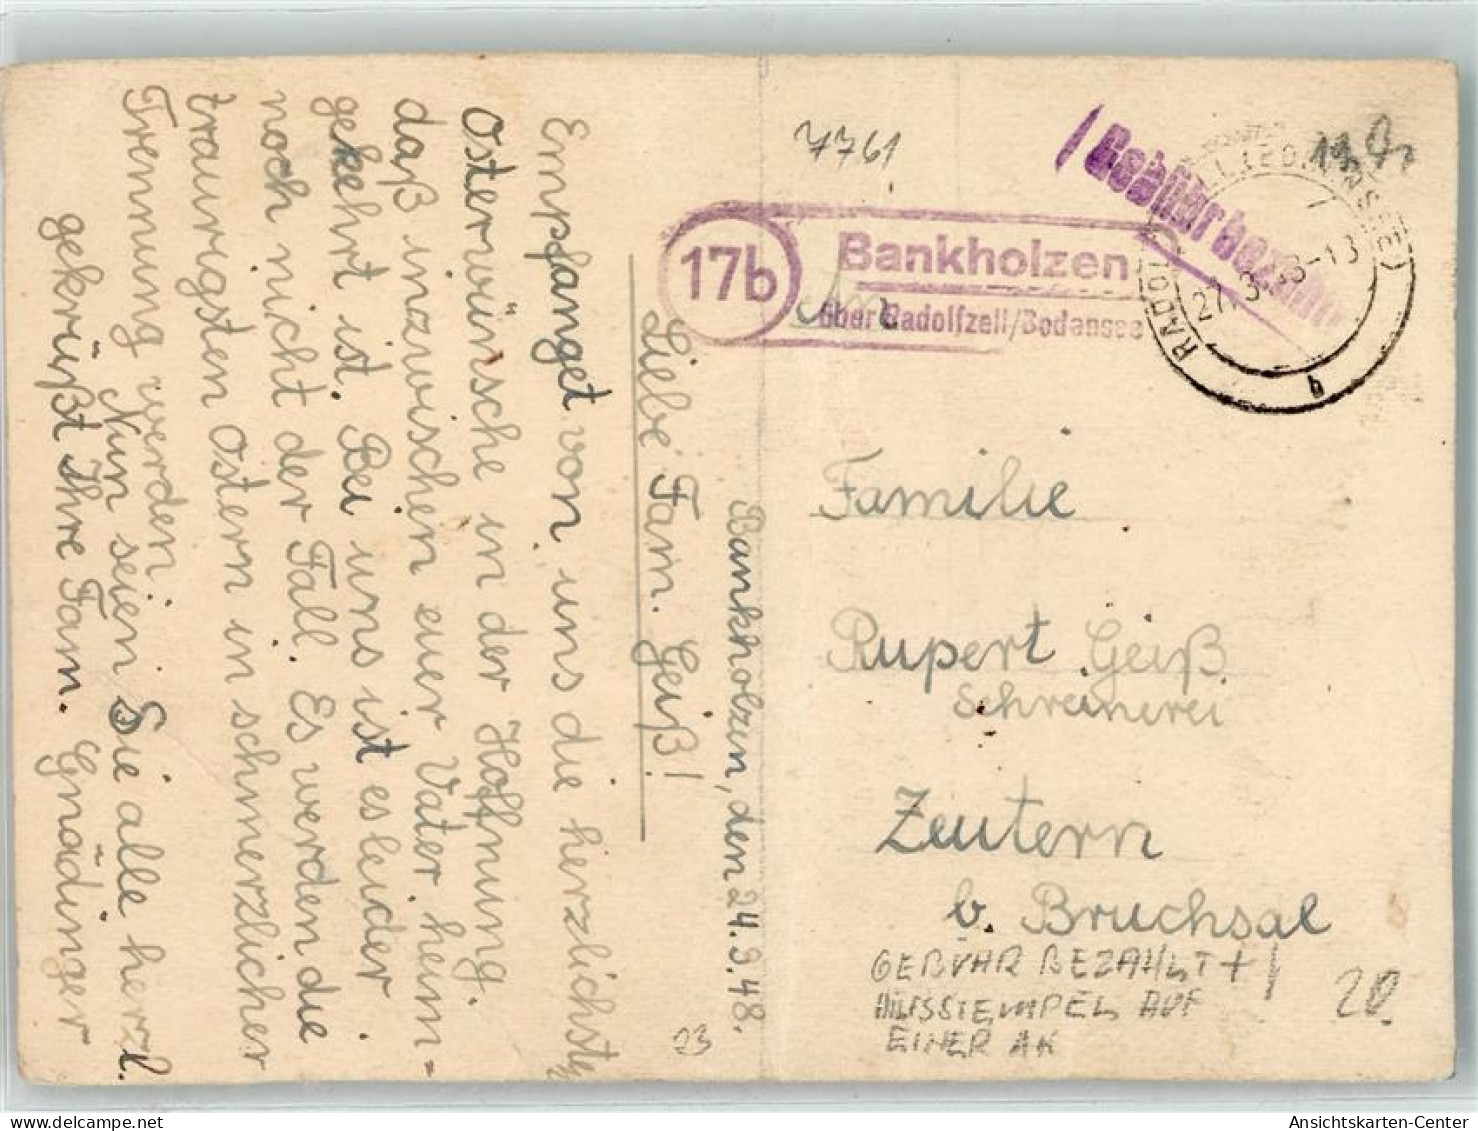 Bankholzen, den 24.3.48.
Liebe Fam. Geiß!
Empfanget von uns die herzlichste
Osterwünsche in der Hoffnung,
daß inzwischen euer Vater heim-
gekehrt ist. Bei uns ist es leider
noch nicht der Fall. Es werden die
traurigsten Ostern in schmerzlicher
Trennung werden.
Nun seien Sie alle herzl.
gekrüßt Ihre Fam. Gnädinger
7761
Gebühr bezahlt
17b
Bankholzen
über Radolfzell/Bodensee
An
27.3.48-13
b
Familie
Rupert Geiß
Schreinerei
Zeutern
b. Bruchsal
GEBÜHR BEZAHLT +
HILFSSTEMPEL AUF
EINER AK
20
23
Ansichtskarten-Center